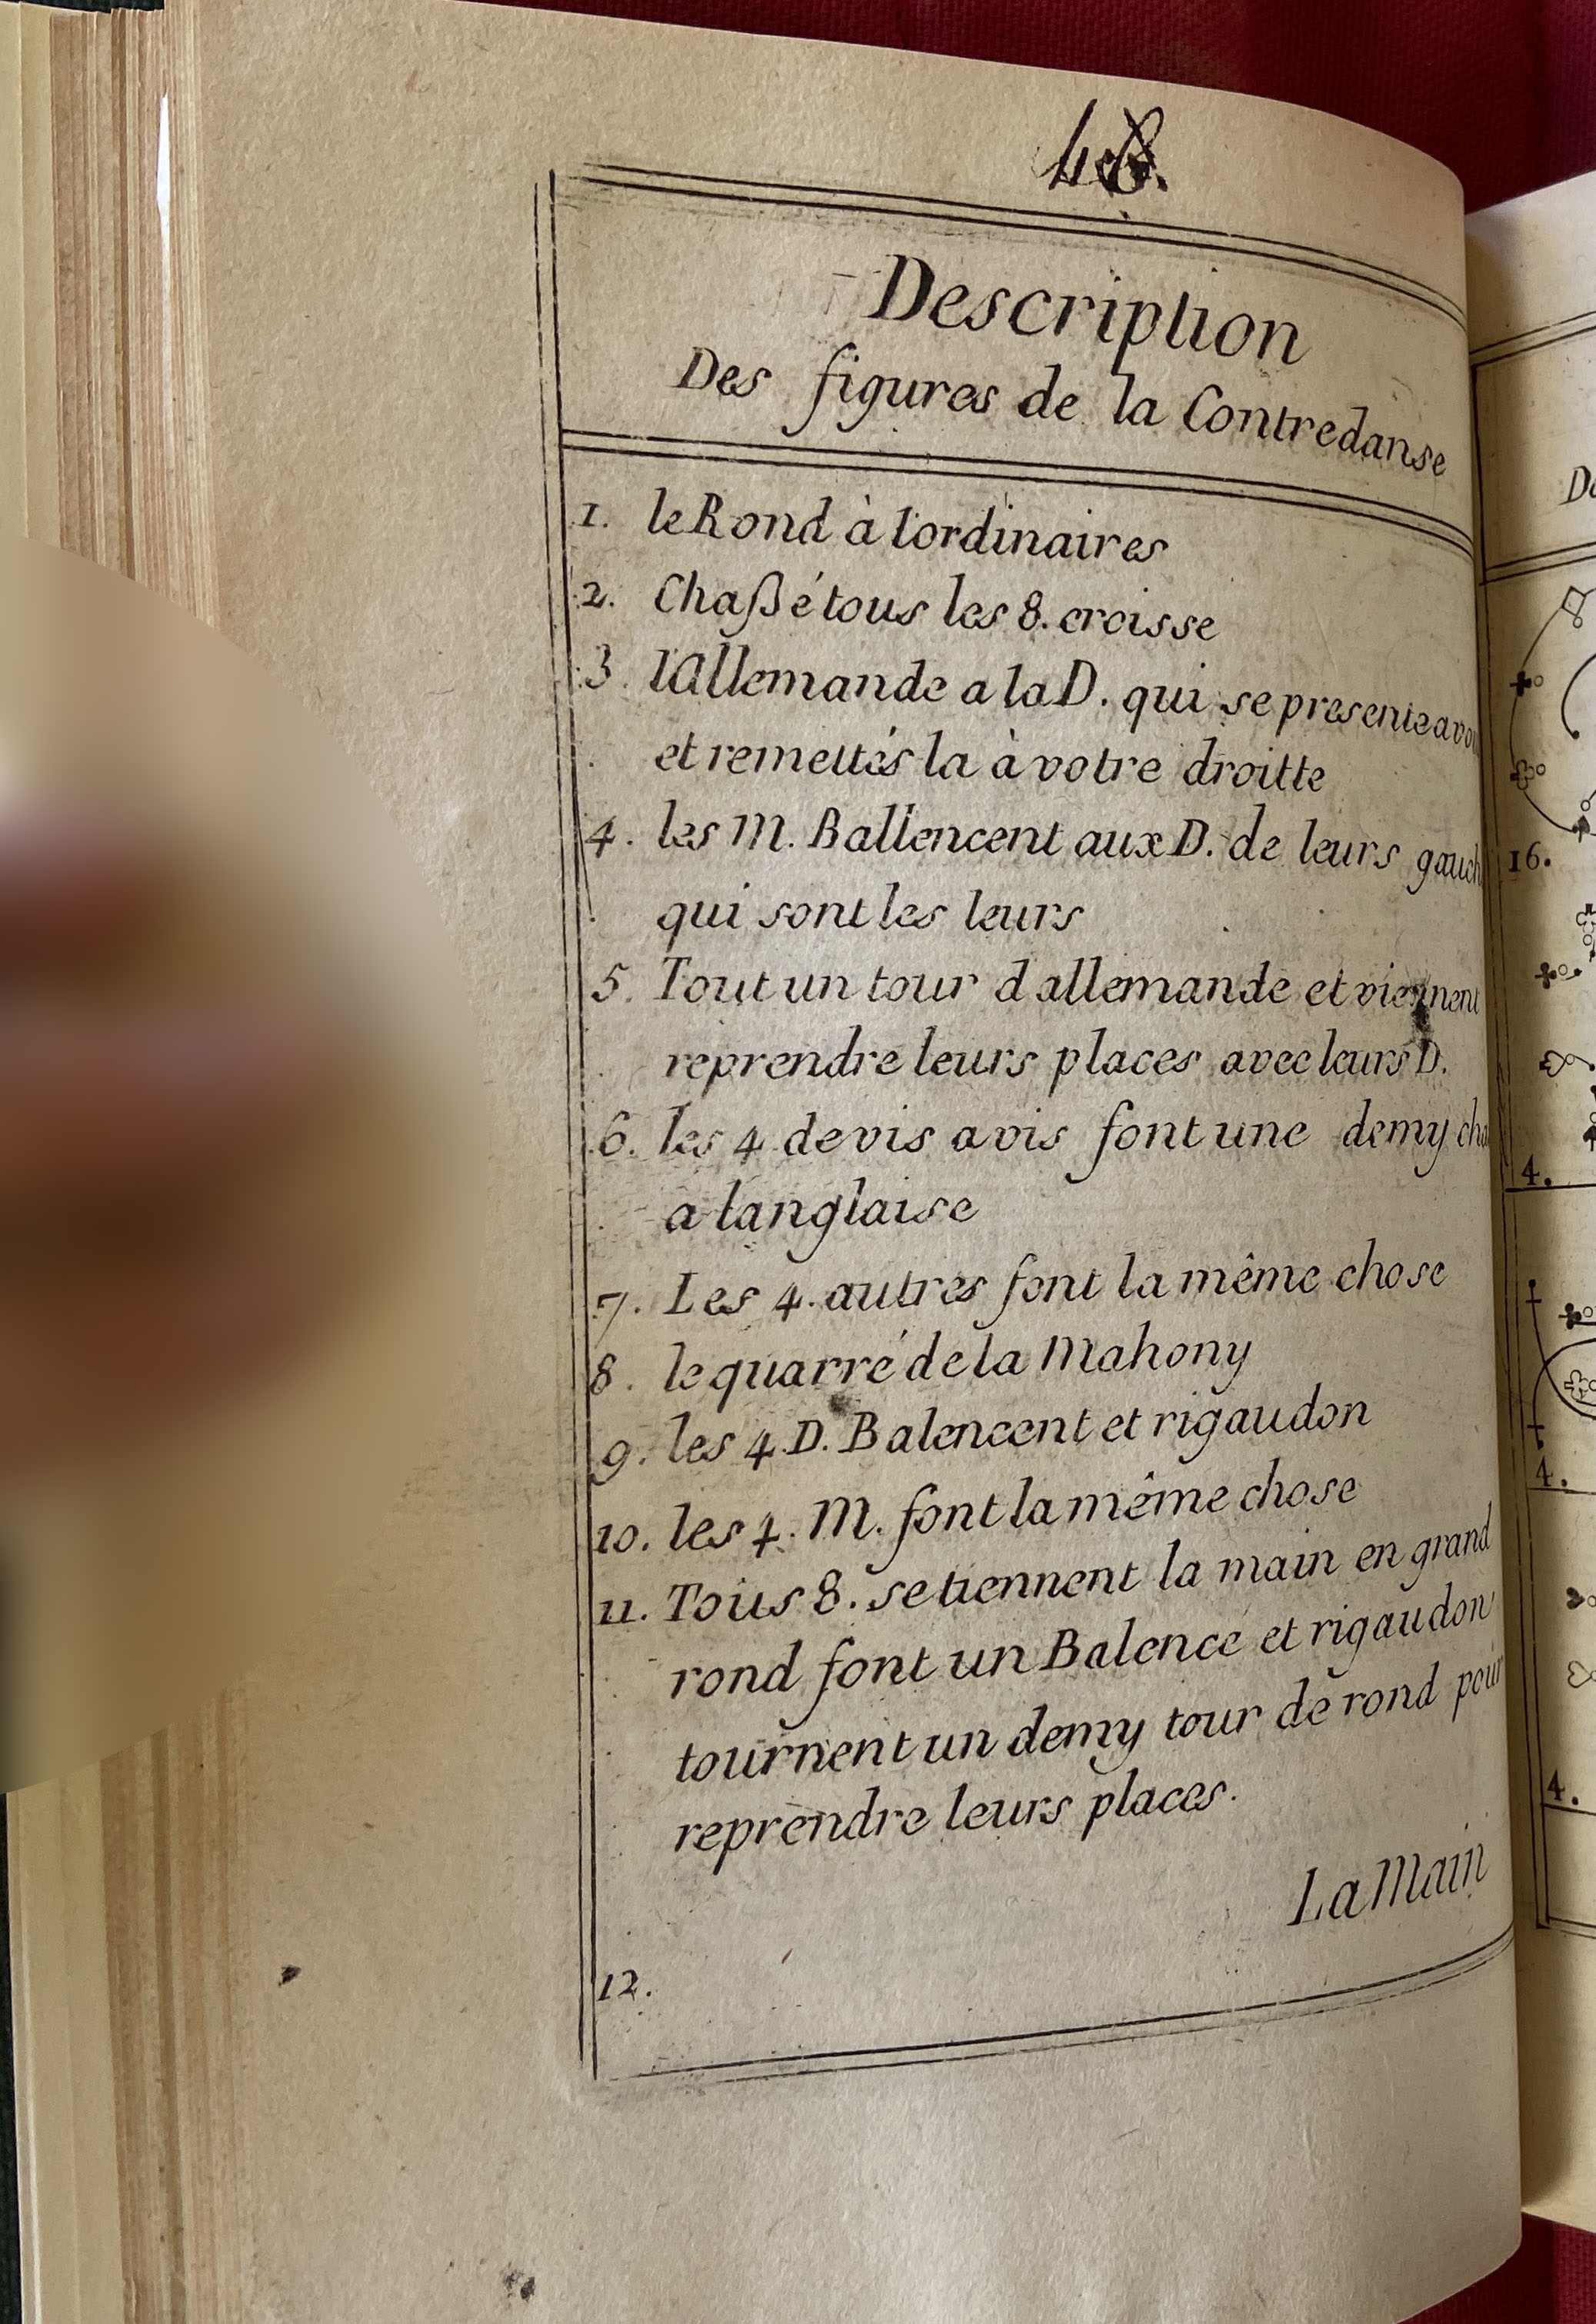 Description
Des figures de la Contredanse
1. le Rond à l'ordinaires
2. Chaßé tous les 8. croisse
3. l'Allemande a la D. qui se presente a vo
et remettés la à votre droitte
4. les M. Ballencent aux D. de leurs gauch
qui sont les leurs
5. Tout un tour d'allemande et viennent
reprendre leurs places avec leurs D.
6. les 4 de vis a vis font une demy cha
a langlaise
7. Les 4. autres font la même chose
8. le quarré de la Mahony
9. les 4 D. Balencent et rigaudon
10. les 4. M. font la même chose
11. Tous 8. se tiennent la main en grand
rond font un Balencé et rigaudon
tournent un demy tour de rond pour
reprendre leurs places.
La Main
12.
16.
4.
4.
4.